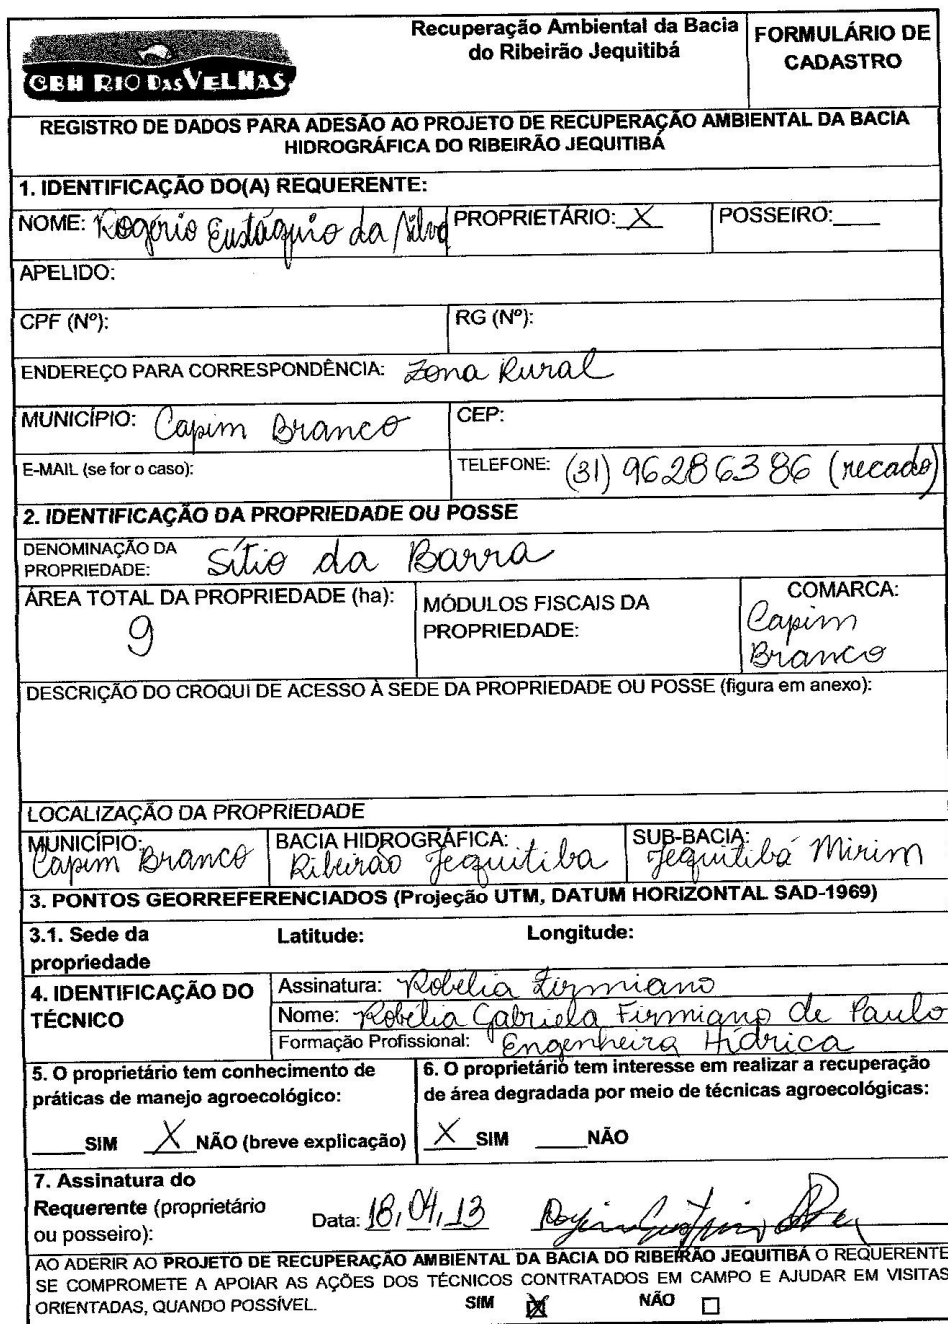 CBH RIO DAS VELHAS
Recuperação Ambiental da Bacia
do Ribeirão Jequitibá
FORMULÁRIO DE
CADASTRO
REGISTRO DE DADOS PARA ADESÃO AO PROJETO DE RECUPERAÇÃO AMBIENTAL DA BACIA
HIDROGRÁFICA DO RIBEIRÃO JEQUITIBÁ
1. IDENTIFICAÇÃO DO(A) REQUERENTE:
NOME: Rogério Eustáquio da Silva PROPRIETÁRIO: X POSSEIRO:___
APELIDO:
CPF (Nº): RG (Nº):
ENDEREÇO PARA CORRESPONDÊNCIA: Zona Rural
MUNICÍPIO: Capim Branco CEP:
E-MAIL (se for o caso): TELEFONE: (31) 96286386 (recado)
2. IDENTIFICAÇÃO DA PROPRIEDADE OU POSSE
DENOMINAÇÃO DA
PROPRIEDADE: Sítio da Barra
ÁREA TOTAL DA PROPRIEDADE (ha):
9
MÓDULOS FISCAIS DA
PROPRIEDADE:
COMARCA:
Capim
Branco
DESCRIÇÃO DO CROQUI DE ACESSO À SEDE DA PROPRIEDADE OU POSSE (figura em anexo):
LOCALIZAÇÃO DA PROPRIEDADE
MUNICÍPIO:
Capim Branco
BACIA HIDROGRÁFICA:
Ribeirão Jequitiba
SUB-BACIA:
Jequitibá Mirim
3. PONTOS GEORREFERENCIADOS (Projeção UTM, DATUM HORIZONTAL SAD-1969)
3.1. Sede da
propriedade
Latitude: Longitude:
4. IDENTIFICAÇÃO DO
TÉCNICO
Assinatura: Robélia Firmiano
Nome: Robélia Gabriela Firmiano de Paula
Formação Profissional: Engenheira Hídrica
5. O proprietário tem conhecimento de
práticas de manejo agroecológico:
____SIM X NÃO (breve explicação)
6. O proprietário tem interesse em realizar a recuperação
de área degradada por meio de técnicas agroecológicas:
X SIM ____NÃO
7. Assinatura do
Requerente (proprietário
ou posseiro):
Data: 18,04,13
AO ADERIR AO PROJETO DE RECUPERAÇÃO AMBIENTAL DA BACIA DO RIBEIRÃO JEQUITIBÁ O REQUERENTE
SE COMPROMETE A APOIAR AS AÇÕES DOS TÉCNICOS CONTRATADOS EM CAMPO E AJUDAR EM VISITAS
ORIENTADAS, QUANDO POSSÍVEL. SIM ☒ NÃO ☐